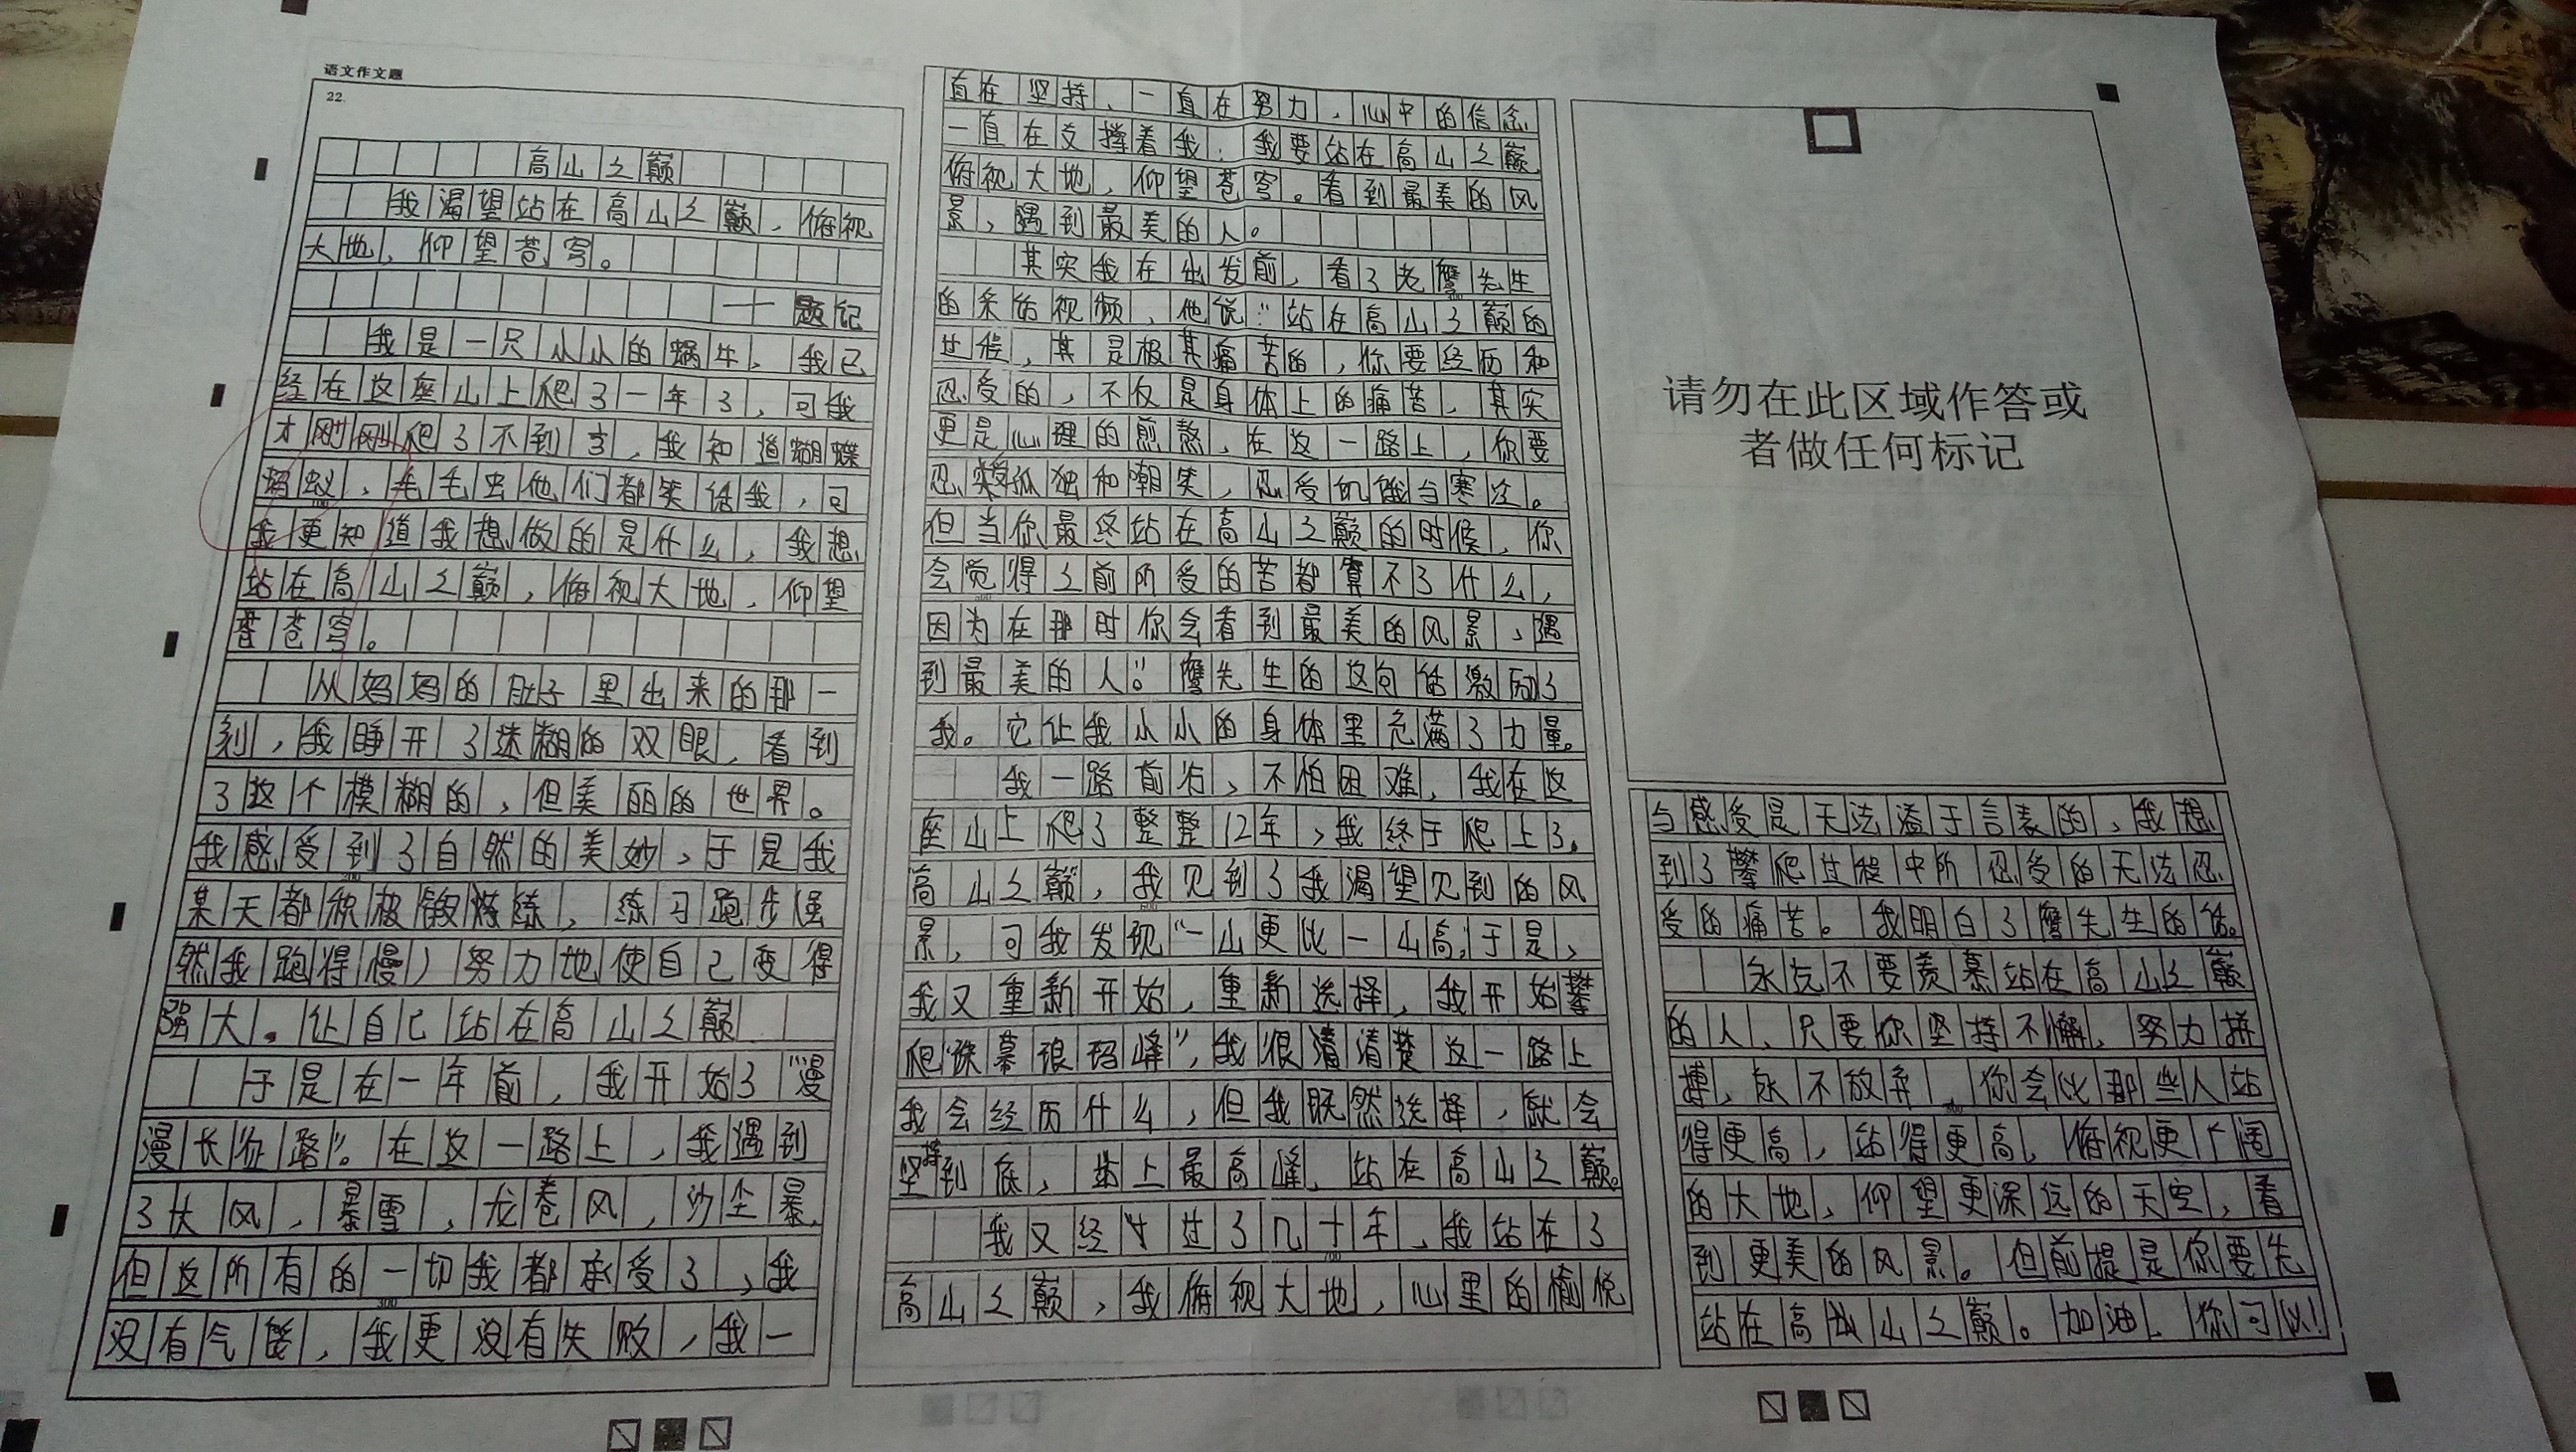 语文作文题
22.
高山之巅
我渴望站在高山之巅，俯视
大地，仰望苍穹。
——题记
我是一只小小的蜗牛，我已
经在这座山上爬了一年了，可我
才刚刚爬了不到，我知道蝴蝶
蚂蚁、毛毛虫他们都笑话我，可
我更知道我想做的是什么，我想
站在高山之巅，俯视大地，仰望
苍穹。
从妈妈的肚子里出来的那一
刻，我睁开了迷糊的双眼，看到
了这个模糊的，但美丽的世界。
我感受到了自然的美妙、于是我
某天都积极锻炼，练习跑步（虽
然我跑得慢）努力地使自己变得
强大。让自己站在高山之巅
于是在一年前，我开始了“漫
漫长征路”。在这一路上，我遇到
了大风，暴雪，龙卷风，沙尘暴，
但这所有的一切我都承受了，我
300
没有气馁，我更没有失败，我一
直在坚持、一直在努力，心中的信念
一直在支撑着我：我要站在高山之巅，
俯视大地，仰望苍穹。看到最美的风
景，遇到最美的人。
其实我在出发前，看了老鹰先生
的采访视频，他说：“站在高山之巅的
过程，其是极其痛苦的，你要经历和
忍受的，不仅是身体上的痛苦，其实
更是心理的煎熬，在这一路上，你要
忍受孤独和嘲笑，忍受饥饿与寒冷。
但当你最终站在高山之巅的时候，你
会觉得之前所受的苦都算不了什么，
500
因为在那时你会看到最美的风景，遇
到最美的人。”鹰先生的这句话激励了
我。它让我小小的身体里充满了力量。
我一路前行，不怕困难，我在这
座山上爬了整整12年，我终于爬上了。
高山之巅，我见到了我渴望见到的风
600
景，可我发现“一山更比一山高，于是，
我又重新开始，重新选择，我开始攀
爬“珠幕琅玛峰”，我很清清楚这一路上
我会经历什么，但我既然选择，就会
坚持到底，站上最高峰，站在高山之巅。
我又经过了几十年，我站在了
700
高山之巅，我俯视大地，心里的愉悦
请勿在此区域作答或
者做任何标记
与感受是无法溢于言表的，我想
到了攀爬过程中所忍受的无法忍
受的痛苦。我明白了鹰先生的话。
永远不要羡慕站在高山之巅
的人、只要你坚持不懈，努力拼
搏，永不放弃，你会比那些人站
800
得更高，站得更高，俯视更广阔
的大地，仰望更深远的天空，看
到更美的风景。但前提是你要先
站在高山之巅。加油，你可以！